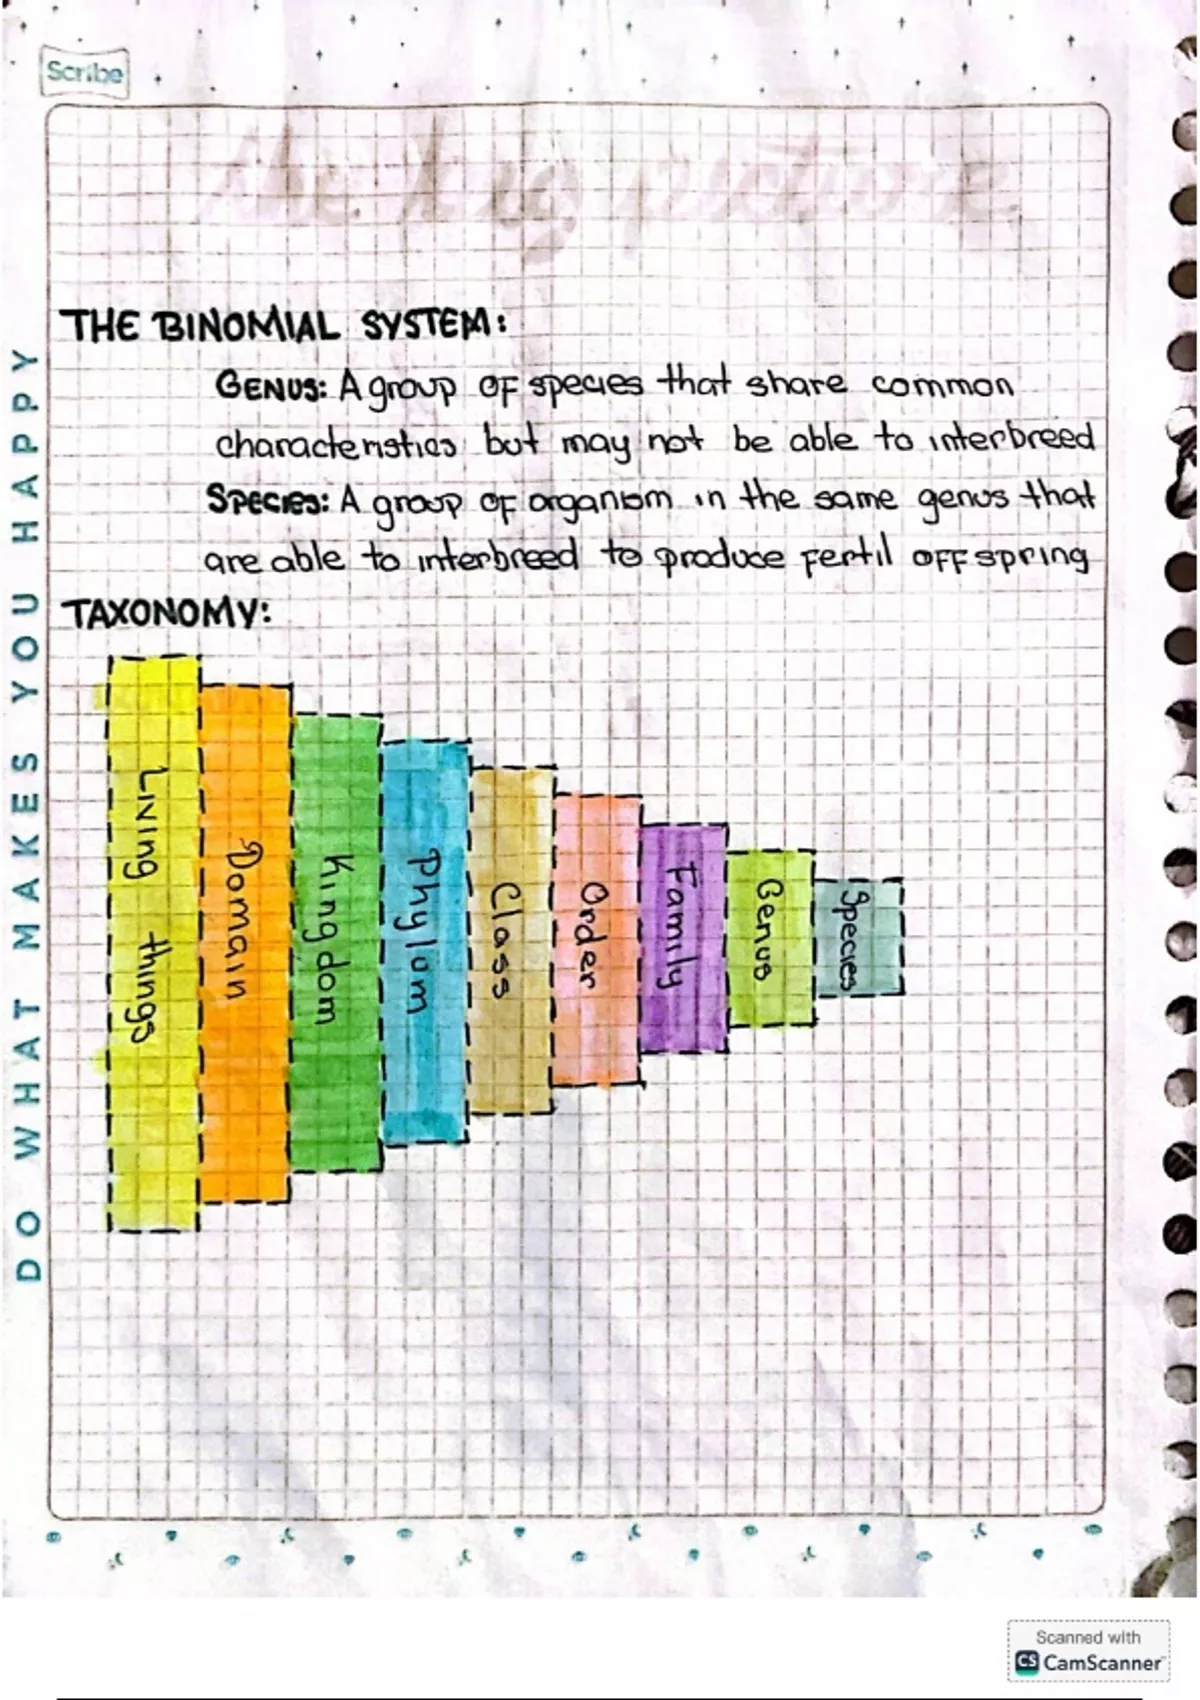 Scribe
THE BINOMIAL SYSTEM:
GENUS: A group of species that share common
characteristics but may not be able to interbreed
SPECIES: A group of organism in the same genus that
are able to interbreed to produce fertil offspring
TAXONOMY:
Living things
Domain
Kingdom
Phylum
Class
Order
Family
Genus
Species
DO WHAT MAKES YOU HAPPY
Scanned with
CS CamScanner